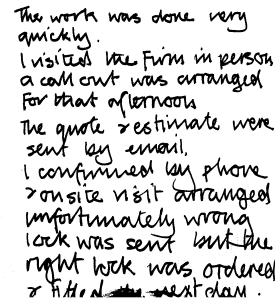 The work was done very
quickly.
I visited the Firm in person
a call out was arranged
For that afternoon
The quote & estimate were
sent by email.
I confirmed by phone
& onsite visit arranged
unfortunately wrong
lock was sent but the
right lock was ordered
& fitted next day.